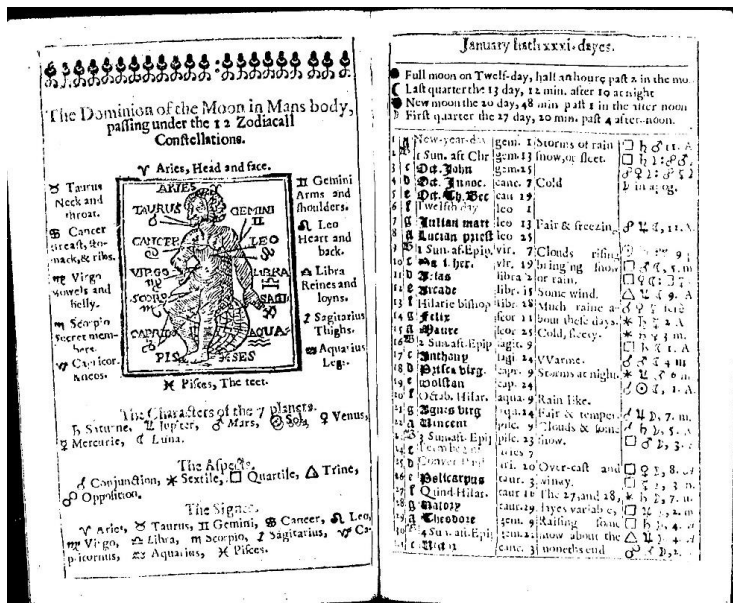 The Dominion of the Moon in Mans body,
passing under the 12 Zodiacall
Constellations.
♈ Aries, Head and face.
♉ Taurus
Neck and
throat.
♋ Cancer
breast, sto-
mack, & ribs.
♍ Virgo
bowels and
belly.
♏ Scorpio
secret mem-
bers.
♑ Capricor.
knees.
ARIES
TAURUS
GEMINI
♊
CANCER
LEO
VIRGO
LIBRA
SCORO
SAGI
CAPRIC
AQUA
PIS
SES
♊ Gemini
Arms and
shoulders.
♌ Leo
Heart and
back.
♎ Libra
Reines and
loyns.
♐ Sagitarius
Thighs.
♒ Aquarius
Legs.
♓ Pisces, The feet.
The Characters of the 7 planets.
♄ Saturne, ♃ Jupiter, ♂ Mars, ☉ Sol, ♀ Venus,
☿ Mercurie, ☾ Luna.
The Aspects.
☌ Conjunction, ⚹ Sextile, □ Quartile, △ Trine,
☍ Opposition.
The Signes.
♈ Aries, ♉ Taurus, ♊ Gemini, ♋ Cancer, ♌ Leo,
♍ Virgo, ♎ Libra, ♏ Scorpio, ♐ Sagitarius, ♑ Ca-
pricornus, ♒ Aquarius, ♓ Pisces.
January hath xxxi. dayes.
Full moon on Twelf-day, half an houre past 2 in the mo.
Last quarter the 13 day, 12 min. after 10 at night
New moon the 20 day, 48 min past 1 in the after noon
First quarter the 27 day, 20 min. past 4 after-noon.
1 New-year-day gem. 1 Storms of rain
2 1 Sun. aft Chr gem. 13 snow, or sleet.
3 c Oct. John gem. 25
4 d Oct. Innoc. canc. 7 Cold
5 e Oct. Th. Bec can 19
6 f Twelfth day leo 1
7 g Julian mart leo 13 Fair & freezing
8 a Lucian priest leo 25
9 1 Sun. af. Epip. vir. 7 Clouds rising
10 c vir. 19 bringing snow
11 d libra 2 or rain.
12 e Arcade libr. 15 Some wind.
13 f Hilarie bishop libr. 28 Much raine a-
14 g Felix scor 11 bout these days.
15 a Maure scor 25 Cold, sleety.
16 2 Sun. aft. Epip sagit. 9
17 c Anthony sagi 24 VVarme.
18 d Prisca virg. capr. 9 Storms at night.
19 e Wolstan cap. 24
20 f Octab. Hilar. aqua. 9 Rain like.
21 g Agnes virg aqu. 24 Fair & temper.
22 a Vincent pisc. 9 Clouds & some
23 3 Sun. aft. Epip pisc. 23 snow.
24 c aries 7
25 d Conver. Paul 20 Over-cast and
26 e Policarpus taur. 3 windy.
27 f Quind. Hilar. taur 16 The 27, and 28,
28 g taur. 29 dayes variable,
29 a Theodore gem. 9 Raising some
30 4 Sun. aft. Epip gem. 2 snow about the
31 c canc. 3 moneths end